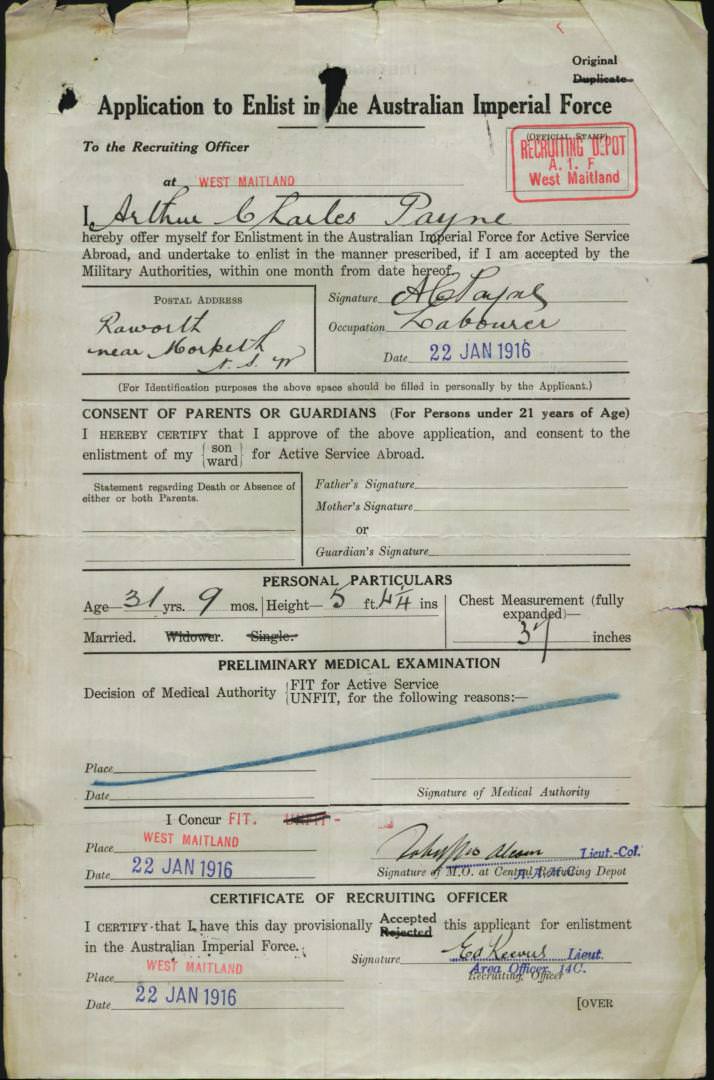 Original
Duplicate
Application to Enlist in the Australian Imperial Force
To the Recruiting Officer
(OFFICIAL STAMP)
RECRUITING DEPOT
A. I. F
West Maitland
at WEST MAITLAND
I, Arthur Charles Payne
hereby offer myself for Enlistment in the Australian Imperial Force for Active Service
Abroad, and undertake to enlist in the manner prescribed, if I am accepted by the
Military Authorities, within one month from date hereof.
POSTAL ADDRESS
Raworth
near Morpeth
N. S. W
Signature A C Payne
Occupation Labourer
Date 22 JAN 1916
(For Identification purposes the above space should be filled in personally by the Applicant.)
CONSENT OF PARENTS OR GUARDIANS (For Persons under 21 years of Age)
I HEREBY CERTIFY that I approve of the above application, and consent to the
enlistment of my {son ward} for Active Service Abroad.
Statement regarding Death or Absence of
either or both Parents.
Father's Signature
Mother's Signature
or
Guardian's Signature
PERSONAL PARTICULARS
Age—31 yrs. 9 mos. Height—5 ft. 4 1/4 ins
Chest Measurement (fully
expanded)—
37 inches
Married. Widower. Single.
PRELIMINARY MEDICAL EXAMINATION
Decision of Medical Authority {FIT for Active Service
{UNFIT, for the following reasons:—
Place
Date
Signature of Medical Authority
I Concur FIT. UNFIT -
Place WEST MAITLAND
Date 22 JAN 1916
Lieut.-Col.
A.A.M.C.
Signature of M.O. at Central Recruiting Depot
CERTIFICATE OF RECRUITING OFFICER
I CERTIFY that I have this day provisionally Accepted Rejected this applicant for enlistment
in the Australian Imperial Force.
Signature Lieut.
Area Officer, 14C.
Recruiting Officer
Place WEST MAITLAND
Date 22 JAN 1916
[OVER